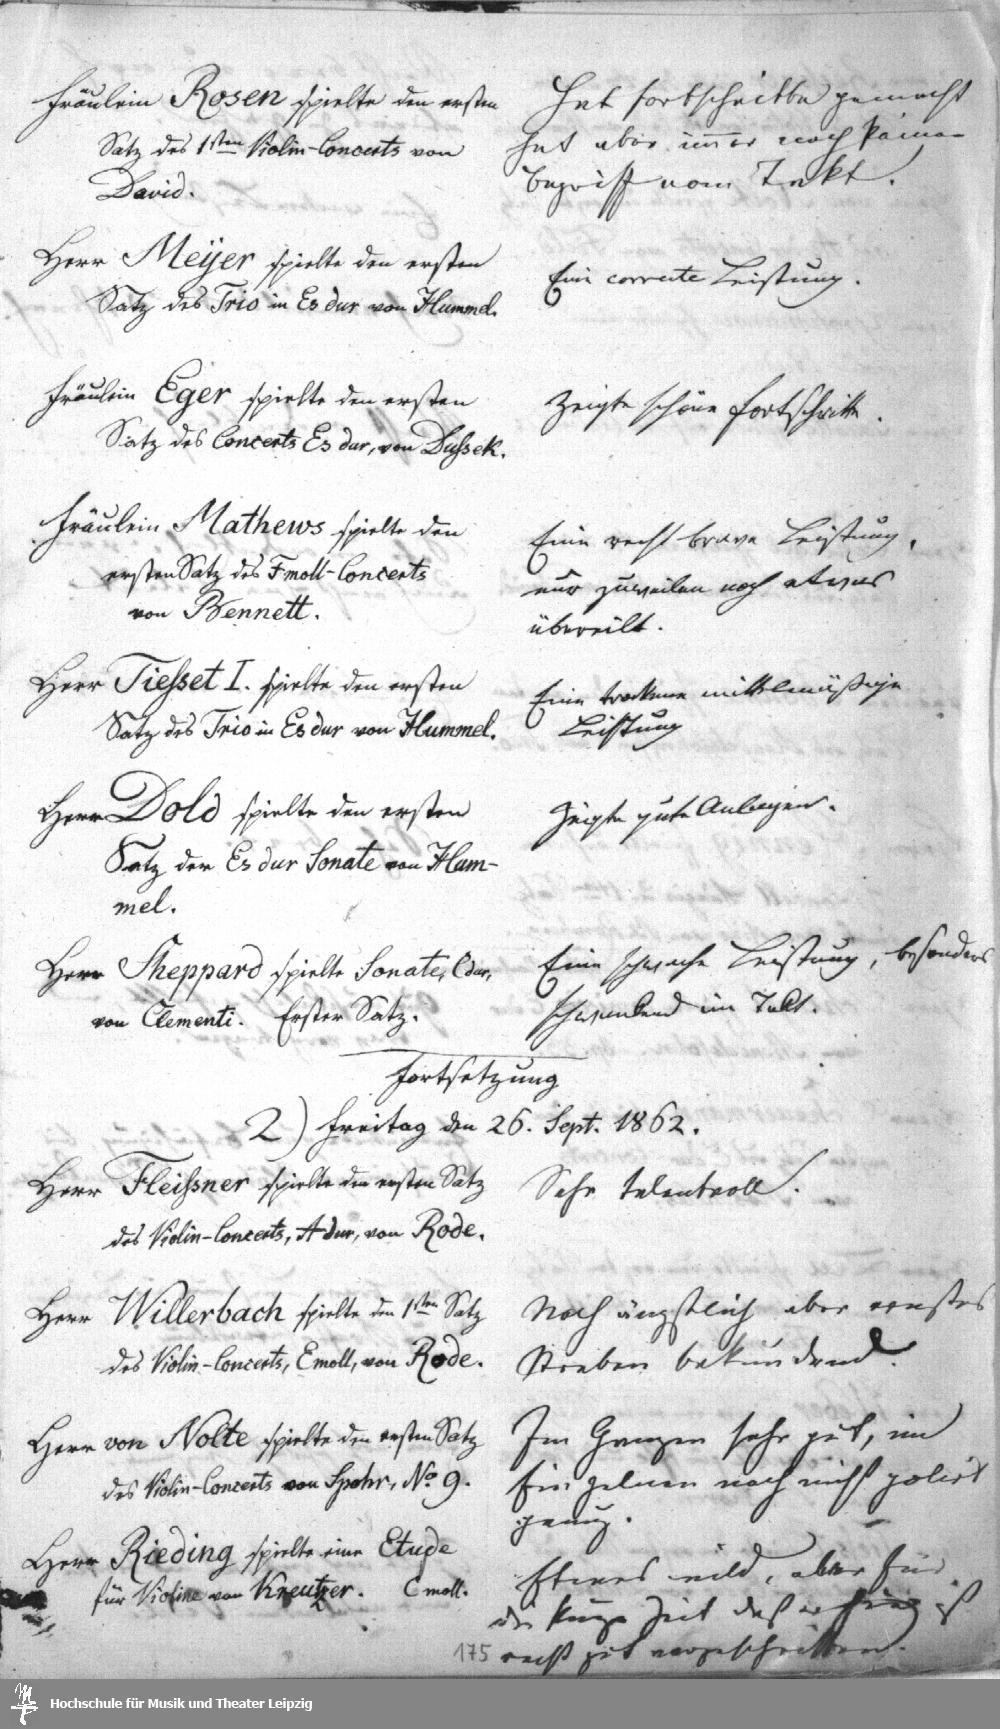 Fräulein Rosen spielte den ersten
Satz des 1sten Violin-Concerts von
David.
Hat Fortschritte gemacht
hat aber immer noch keinen
Begriff vom Takt.
Herr Meijer spielte den ersten
Satz des Trio in Es dur von Hummel.
Eine correcte Leistung.
Fräulein Eger spielte den ersten
Satz des Concerts Es dur, von Dussek.
Zeigte schöne Fortschritte.
Fräulein Mathews spielte den
ersten Satz des Fmoll-Concerts
von Bennett.
Eine recht brave Leistung,
nur zuweilen noch etwas
übereilt.
Herr Tiesset I. spielte den ersten
Satz des Trio in Es dur von Hummel.
Eine trockene mittelmäßige
Leistung
Herr Dold spielte den ersten
Satz der Es dur Sonate von Hum-
mel.
Zeigte gute Anlagen.
Herr Sheppard spielte Sonate, C dur,
von Clementi. Erster Satz.
Eine schwache Leistung, besonders
schwankend im Takt.
Fortsetzung
2) Freitag den 26. Sept. 1862.
Herr Fleissner spielte den ersten Satz
des Violin-Concerts, A dur, von Rode.
Sehr talentvoll.
Herr Willerbach spielte den 1sten Satz
des Violin-Concerts, Emoll, von Rode.
Noch ängstlich aber ernstes
Streben bekundend.
Herr von Nolte spielte den ersten Satz
des Violin-Concerts von Spohr, No 9.
Im Ganzen sehr gut, im
Einzelnen noch nicht polirt
genug.
Herr Rieding spielte eine Etude
für Violine von Kreutzer. C moll.
Etwas wild, aber für
die kurze Zeit daß er hier ist
recht gut vorgeschritten.
175
Hochschule für Musik und Theater Leipzig